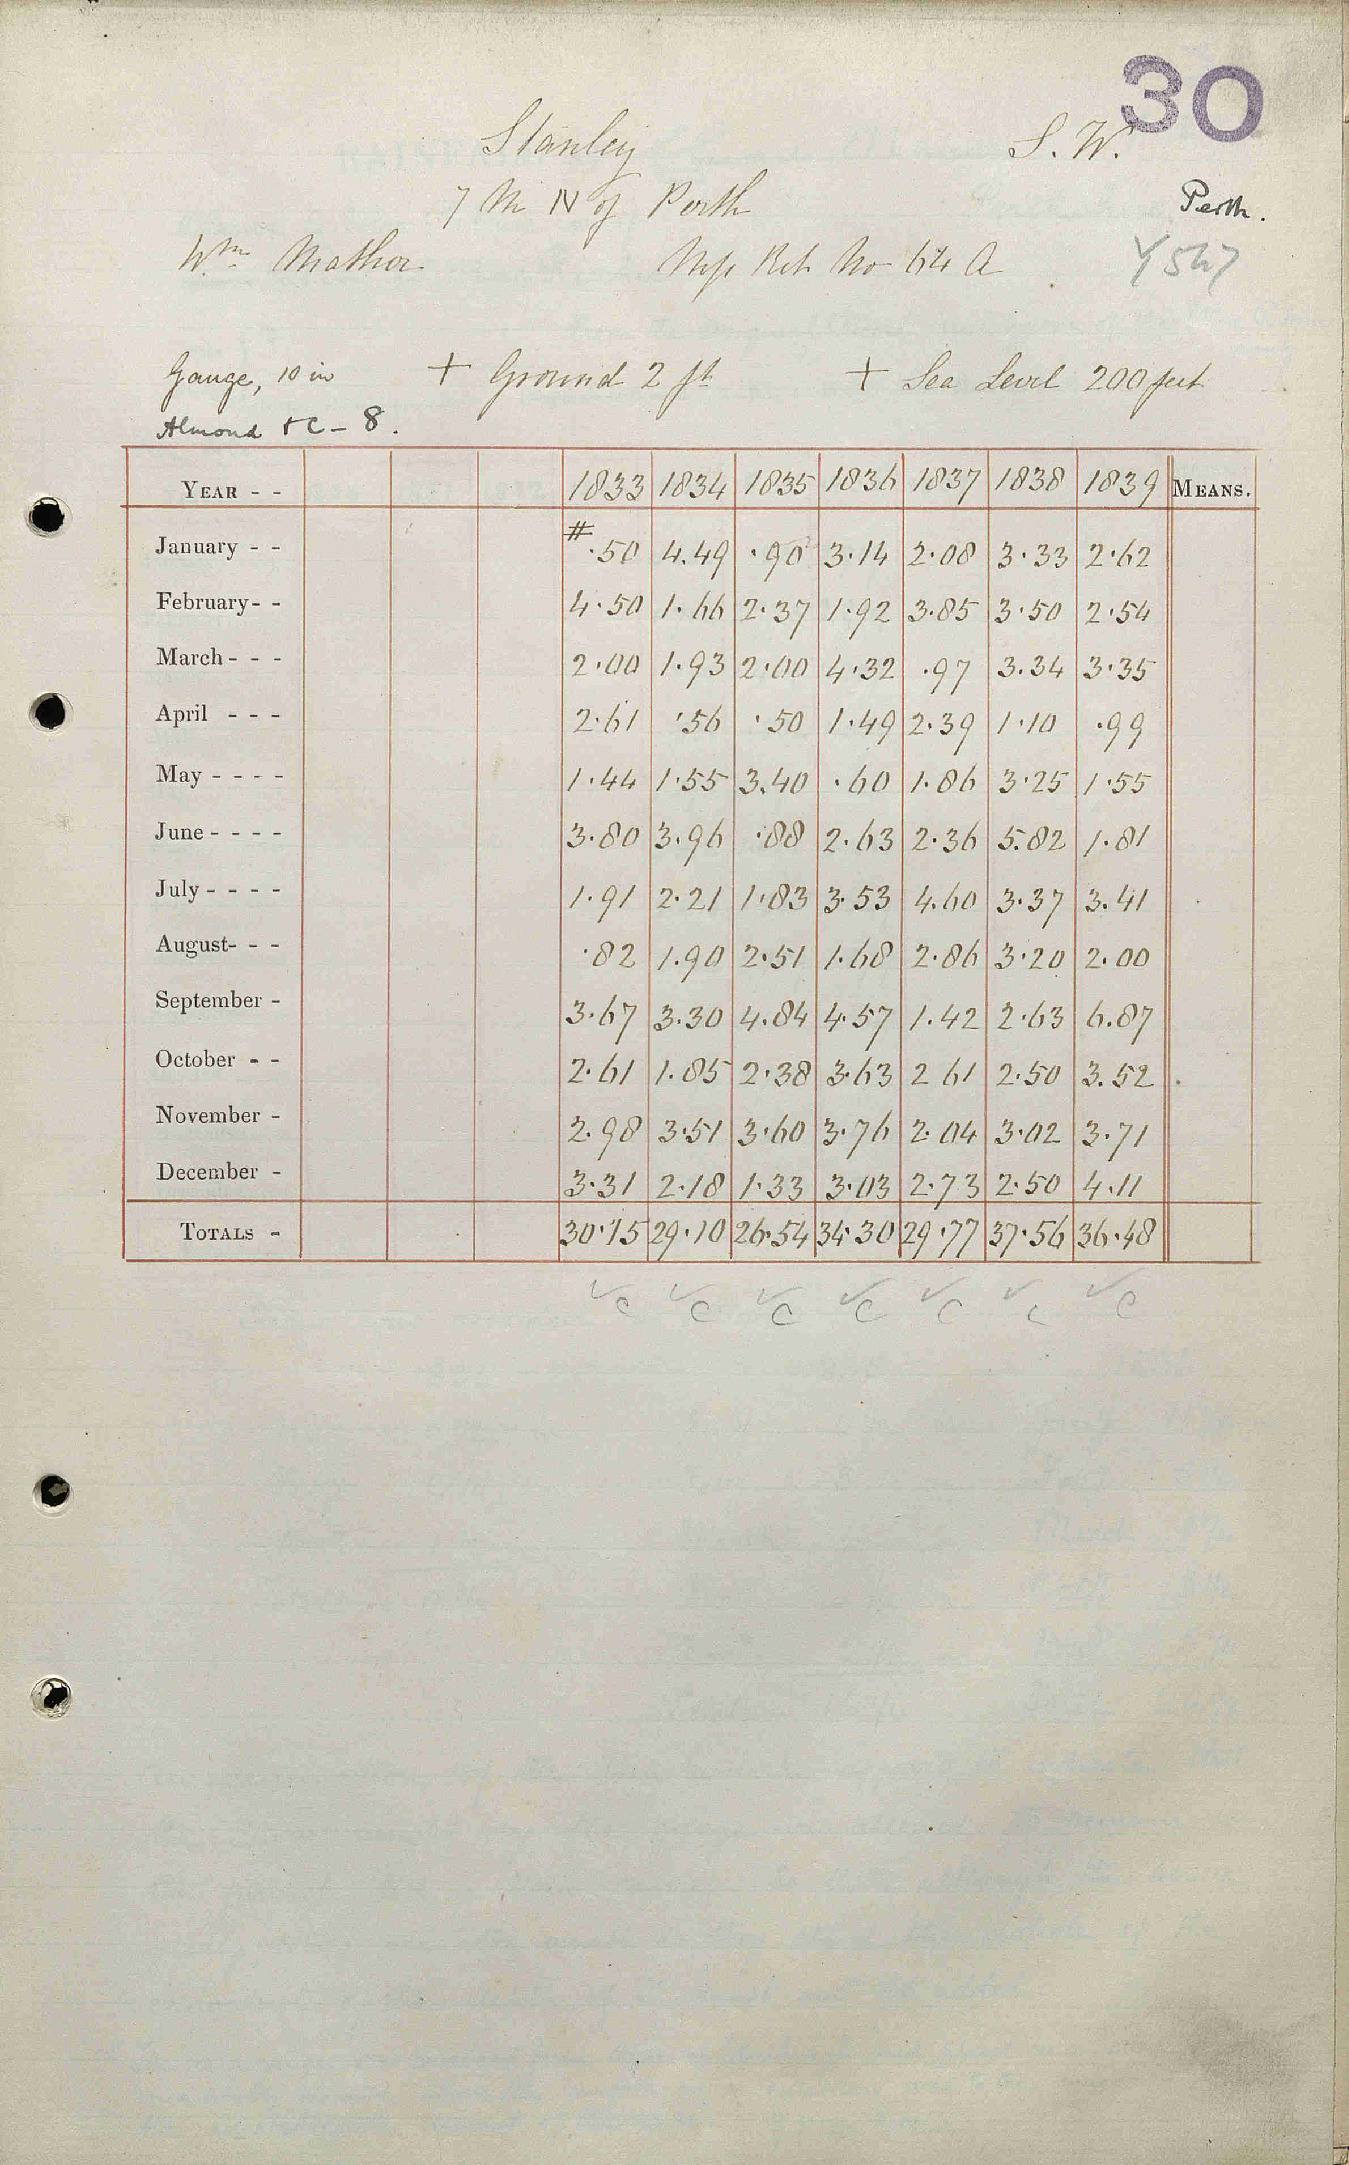 30
Stanley S. W.
7 M N of Perth Perth.
Wm Mathew Mss Ret No 64 A
Gauge, 10 in + Ground 2 ft + Sea Level 200 feet
Almond & C - 8.
YEAR - - 1833 1834 1835 1836 1837 1838 1839 MEANS.
January - - # .50 4.49 .90 3.14 2.08 3.33 2.62
February - - 4.50 1.66 2.37 1.92 3.85 3.50 2.54
March - - - 2.00 1.93 2.00 4.32 .97 3.34 3.35
April - - - 2.61 .56 .50 1.49 2.39 1.10 .99
May - - - - 1.44 1.55 3.40 .60 1.86 3.25 1.55
June - - - - 3.80 3.96 .88 2.63 2.36 5.82 1.81
July - - - - 1.91 2.21 1.83 3.53 4.60 3.37 3.41
August - - - .82 1.90 2.51 1.68 2.86 3.20 2.00
September - 3.67 3.30 4.84 4.57 1.42 2.63 6.87
October - - 2.61 1.85 2.38 3.63 2 61 2.50 3.52
November - 2.98 3.51 3.60 3.76 2.04 3.02 3.71
December - 3.31 2.18 1.33 3.03 2.73 2.50 4.11
TOTALS - 30.15 29.10 26.54 34.30 29.77 37.56 36.48
✓c ✓c ✓c ✓c ✓c ✓c ✓c